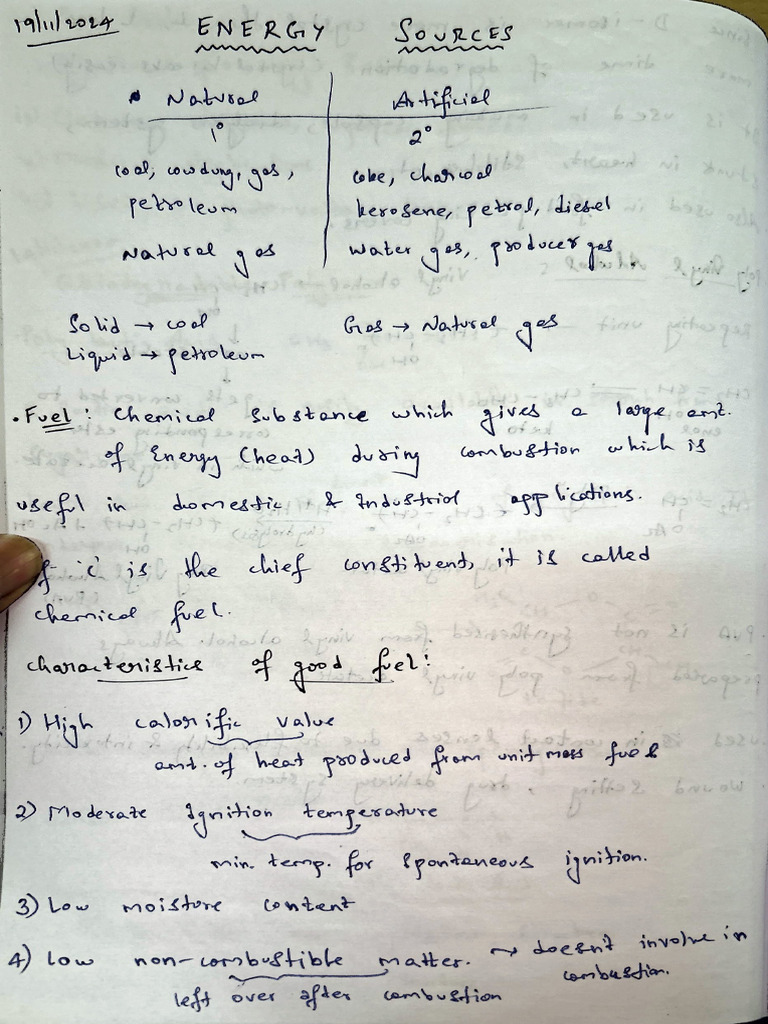 19/11/2024 ENERGY SOURCES
Natural Artificial
1° 2°
coal, cowdung, gas, coke, charcoal
petroleum kerosene, petrol, diesel
Natural gas water gas, producer gas.
Solid → coal Gas → Natural gas
Liquid → petroleum
• Fuel : Chemical substance which gives a large amt.
of Energy (heat) during combustion which is
useful in domestic & Industrial applications.
If 'c' is the chief constituent, it is called
chemical fuel.
characteristics of good fuel :
1) High calorific value
amt. of heat produced from unit mass fuel
2) Moderate Ignition temperature
min. temp. for spontaneous ignition.
3) Low moisture content
4) Low non-combustible matter. → doesn't involve in
combustion.
left over after combustion